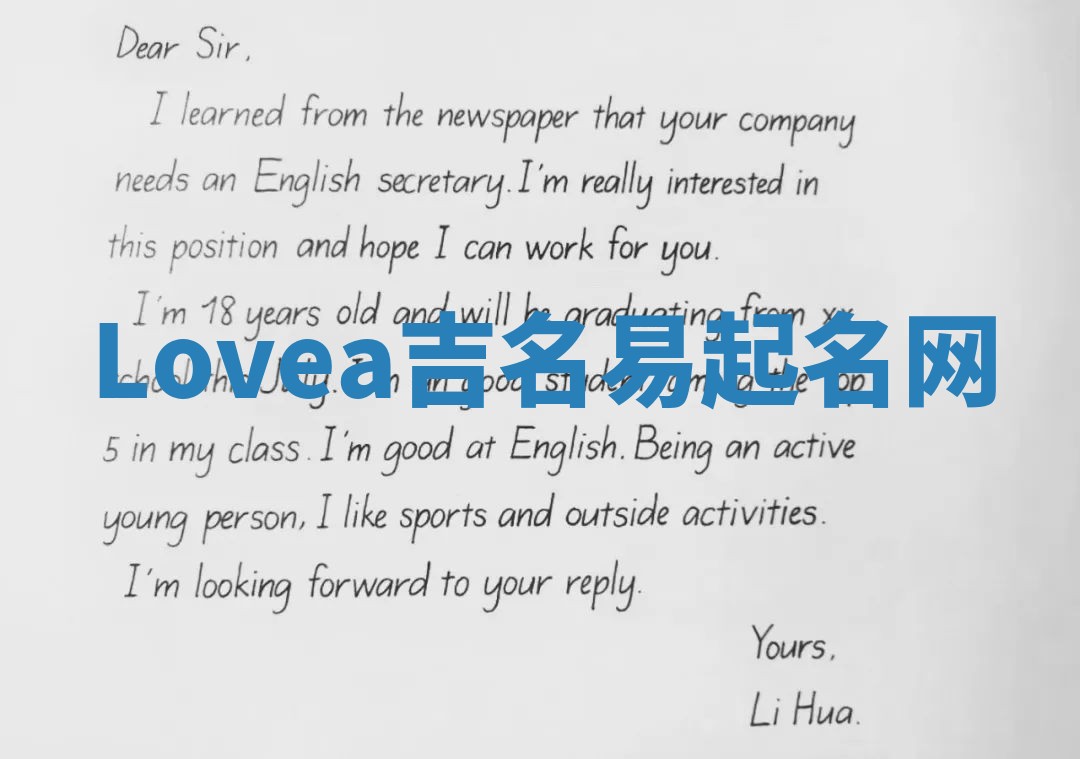 Dear Sir,
I learned from the newspaper that your company
needs an English secretary. I'm really interested in
this position and hope I can work for you.
I'm 18 years old and will be graduating from xx
Lovea吉名易起名网
school this July. I'm an good student among the top
5 in my class. I'm good at English. Being an active
young person, I like sports and outside activities.
I'm looking forward to your reply.
Yours,
Li Hua.